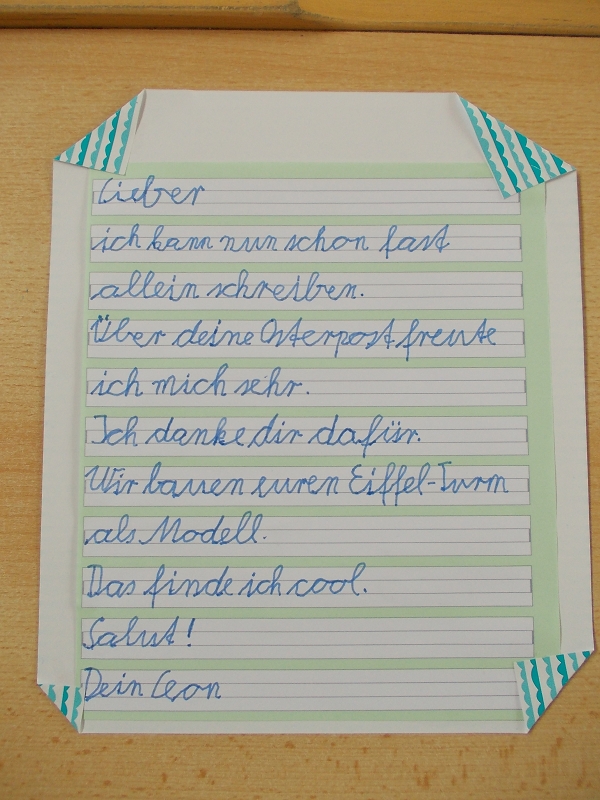 Lieber
ich kann nun schon fast
allein schreiben.
Über deine Osterpost freute
ich mich sehr.
Ich danke dir dafür.
Wir bauen euren Eiffel-Turm
als Modell.
Das finde ich cool.
Salut!
Dein Leon